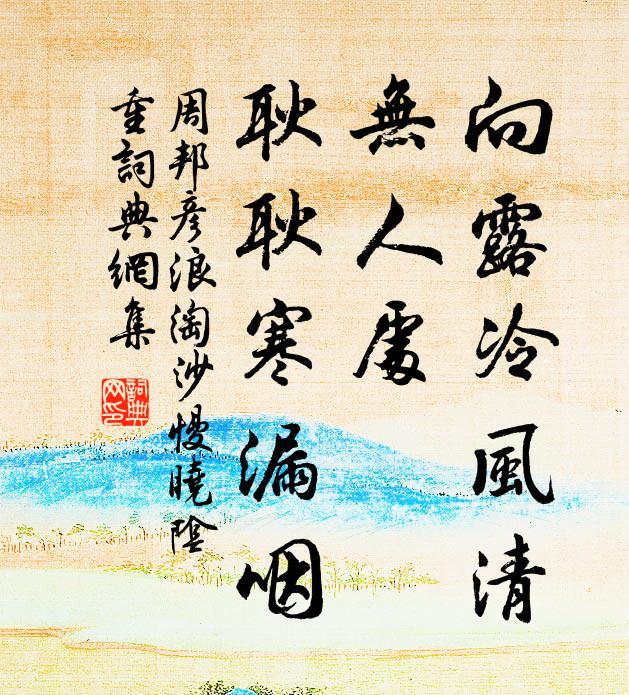 向露冷風清
無人處
耿耿寒漏咽
周邦彥浪淘沙慢曉陰
重詞典網集
詞典
网印